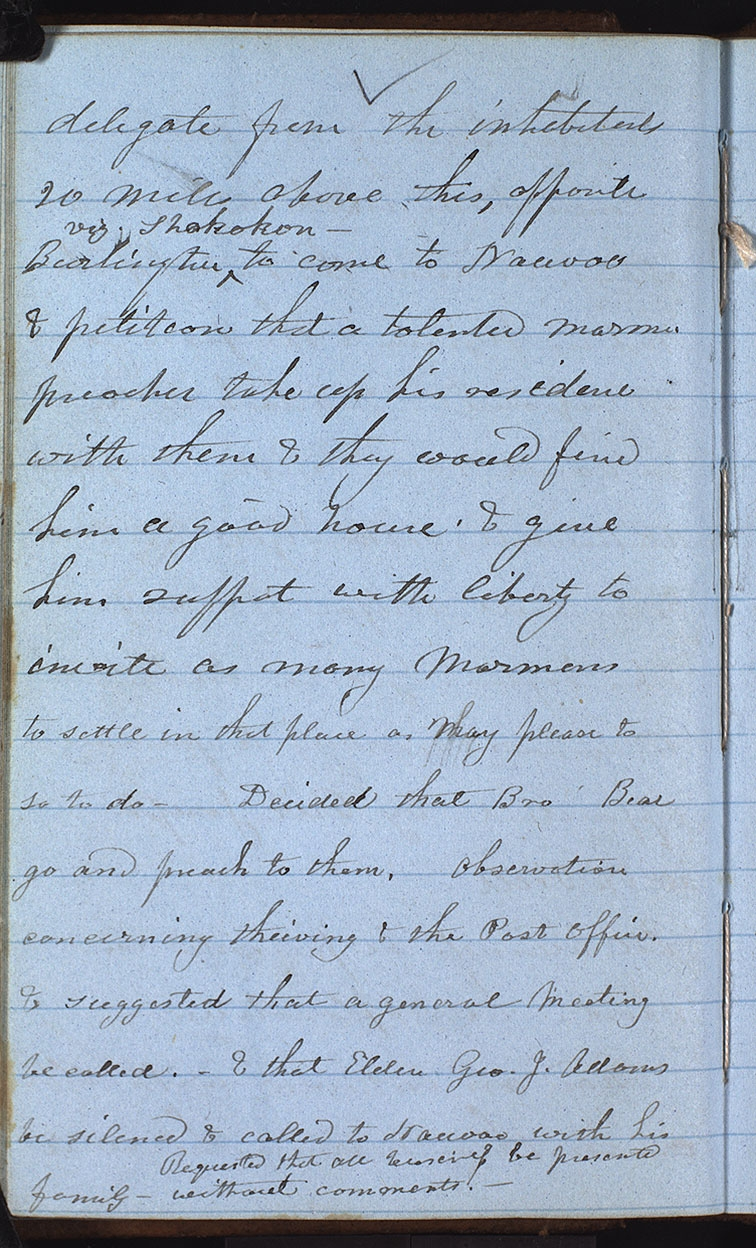 delegate from the inhabitants
20 miles above this, opposite
viz. Shokokon —
Burlington ^ to come to Nauvoo
& petition that a talented mormon
preacher take up his residence
with them & they would find
him a good house & give
him support with liberty to
invite as many Mormons
to settle in that place as may please to
so to do — Decided that Bro Bear
go and preach to them. Observation
concerning theiving & the Post Office.
& suggested that a general Meeting
be called. — & that Elder Geo. J. Adams
be silenced & called to Nauvoo with his
Requested that all be presented
family — without comments. —